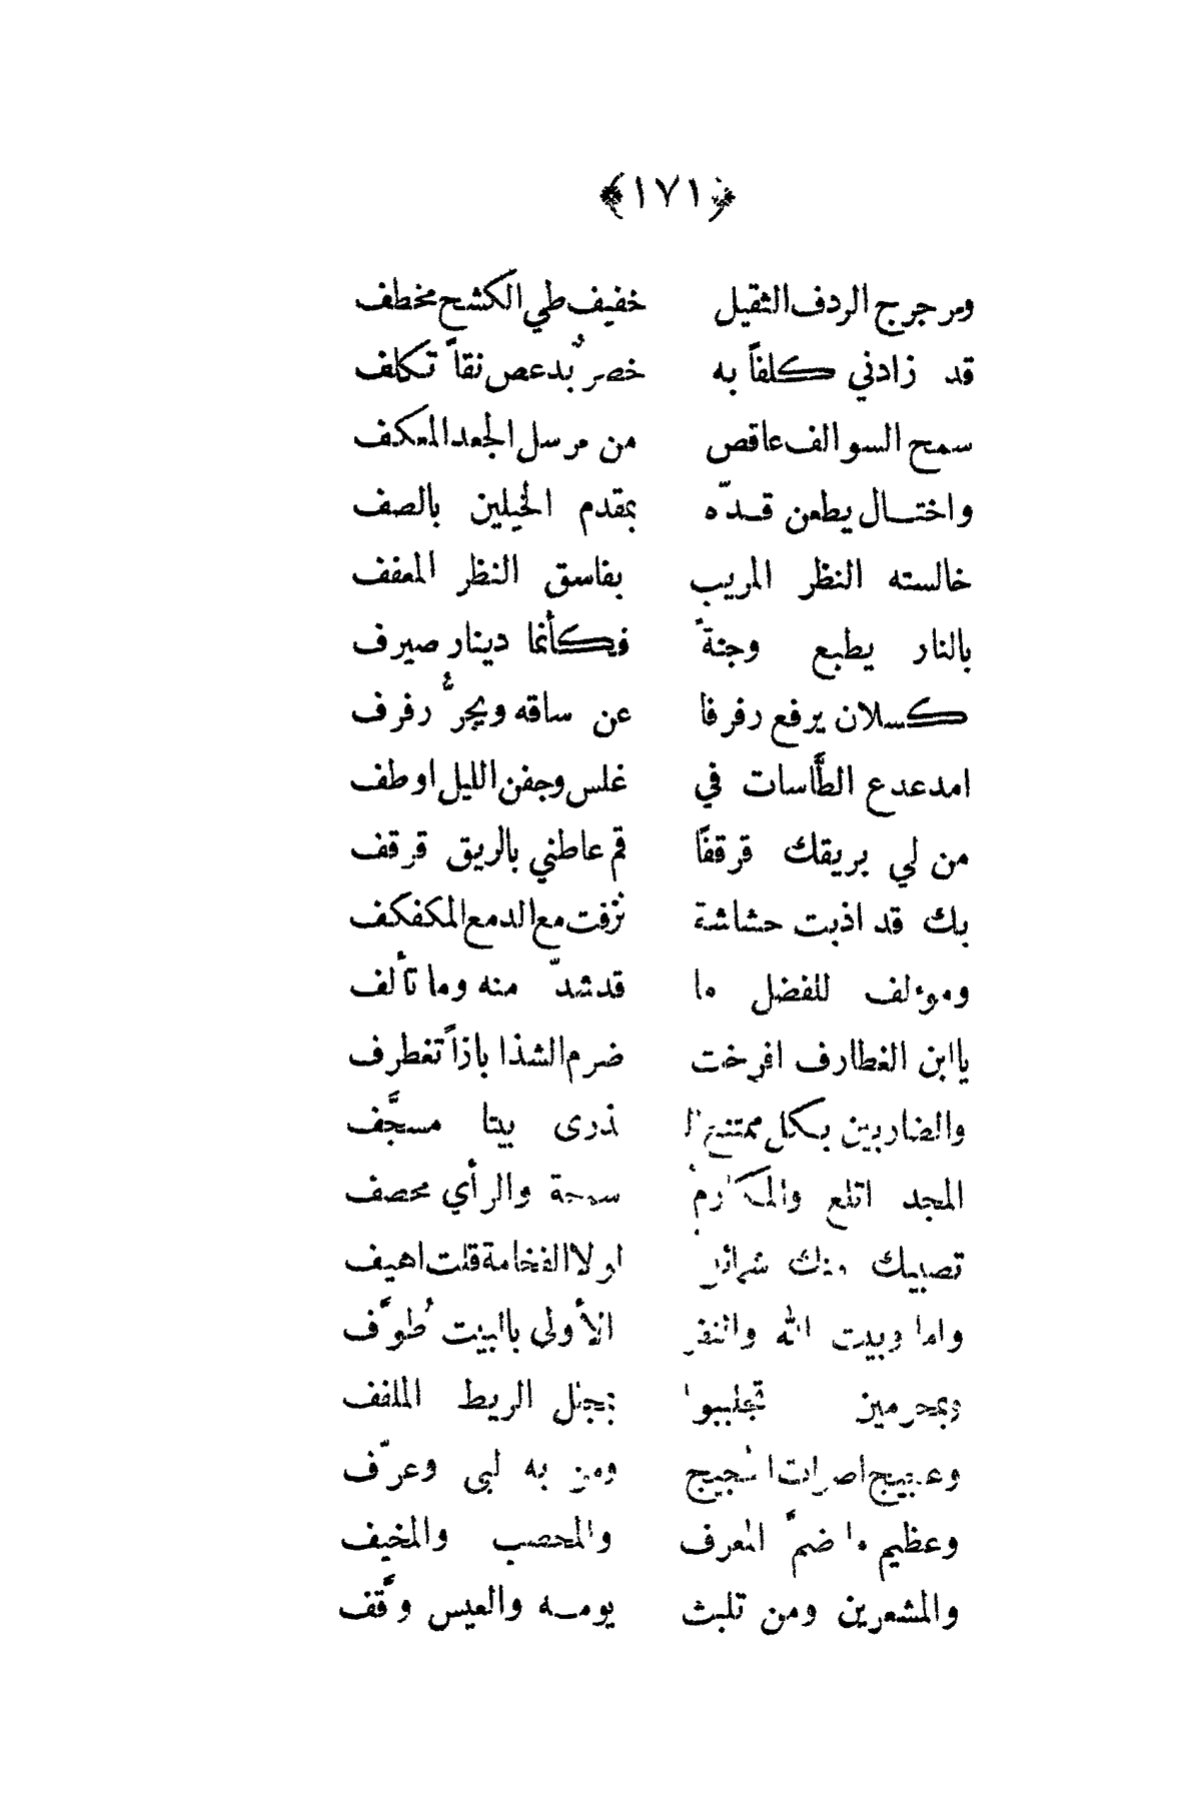 ﴿١٧١﴾
ومرجرج الردف الثقيل خفيف طي الكشح مخطف
قد زادني كلفاً به خصرٌ بدعص نقاً تكلف
سمح السوالف عاقص من مرسل الجعد المعكف
واختال يطعن قدّه بمقدم الخيلين بالصف
خالسته النظر المريب بفاسق النظر المعفف
بالنار يطبع وجنةً فكأنما دينار صيرف
كسلان يرفع رفرفا عن ساقه ويجرُّ رفرف
امدعدع الطَّاسات في غلس وجفن الليل اوطف
من لي بريقك قرقفًا قم عاطني بالريق قرقف
بك قد اذبت حشاشة نزفت مع الدمع المكفكف
ومؤلف للفضل ما قد شدّ منه وما تألف
يا ابن الغطارف افرخت ضرم الشذا بازاً تغطرف
والضاربين بكل ممتنع ال ذرى بيتا مسجَّف
المجد اتلع والمكارم سمحة والرأي محصف
تصبيك منك شمائل لولا الفخامة قلت اهيف
واما وبيت الله والنفر الأولى بالبيت طُوَّف
وبمحرمين تجلببوا الريط الملفف
وعجيج اصوات الحجيج ومن به لبى وعرّف
وعظيم ما ضمَّ المعرف والمحصب والمخيف
والمشعرين ومن تلبث يومه والعيس وقَّف